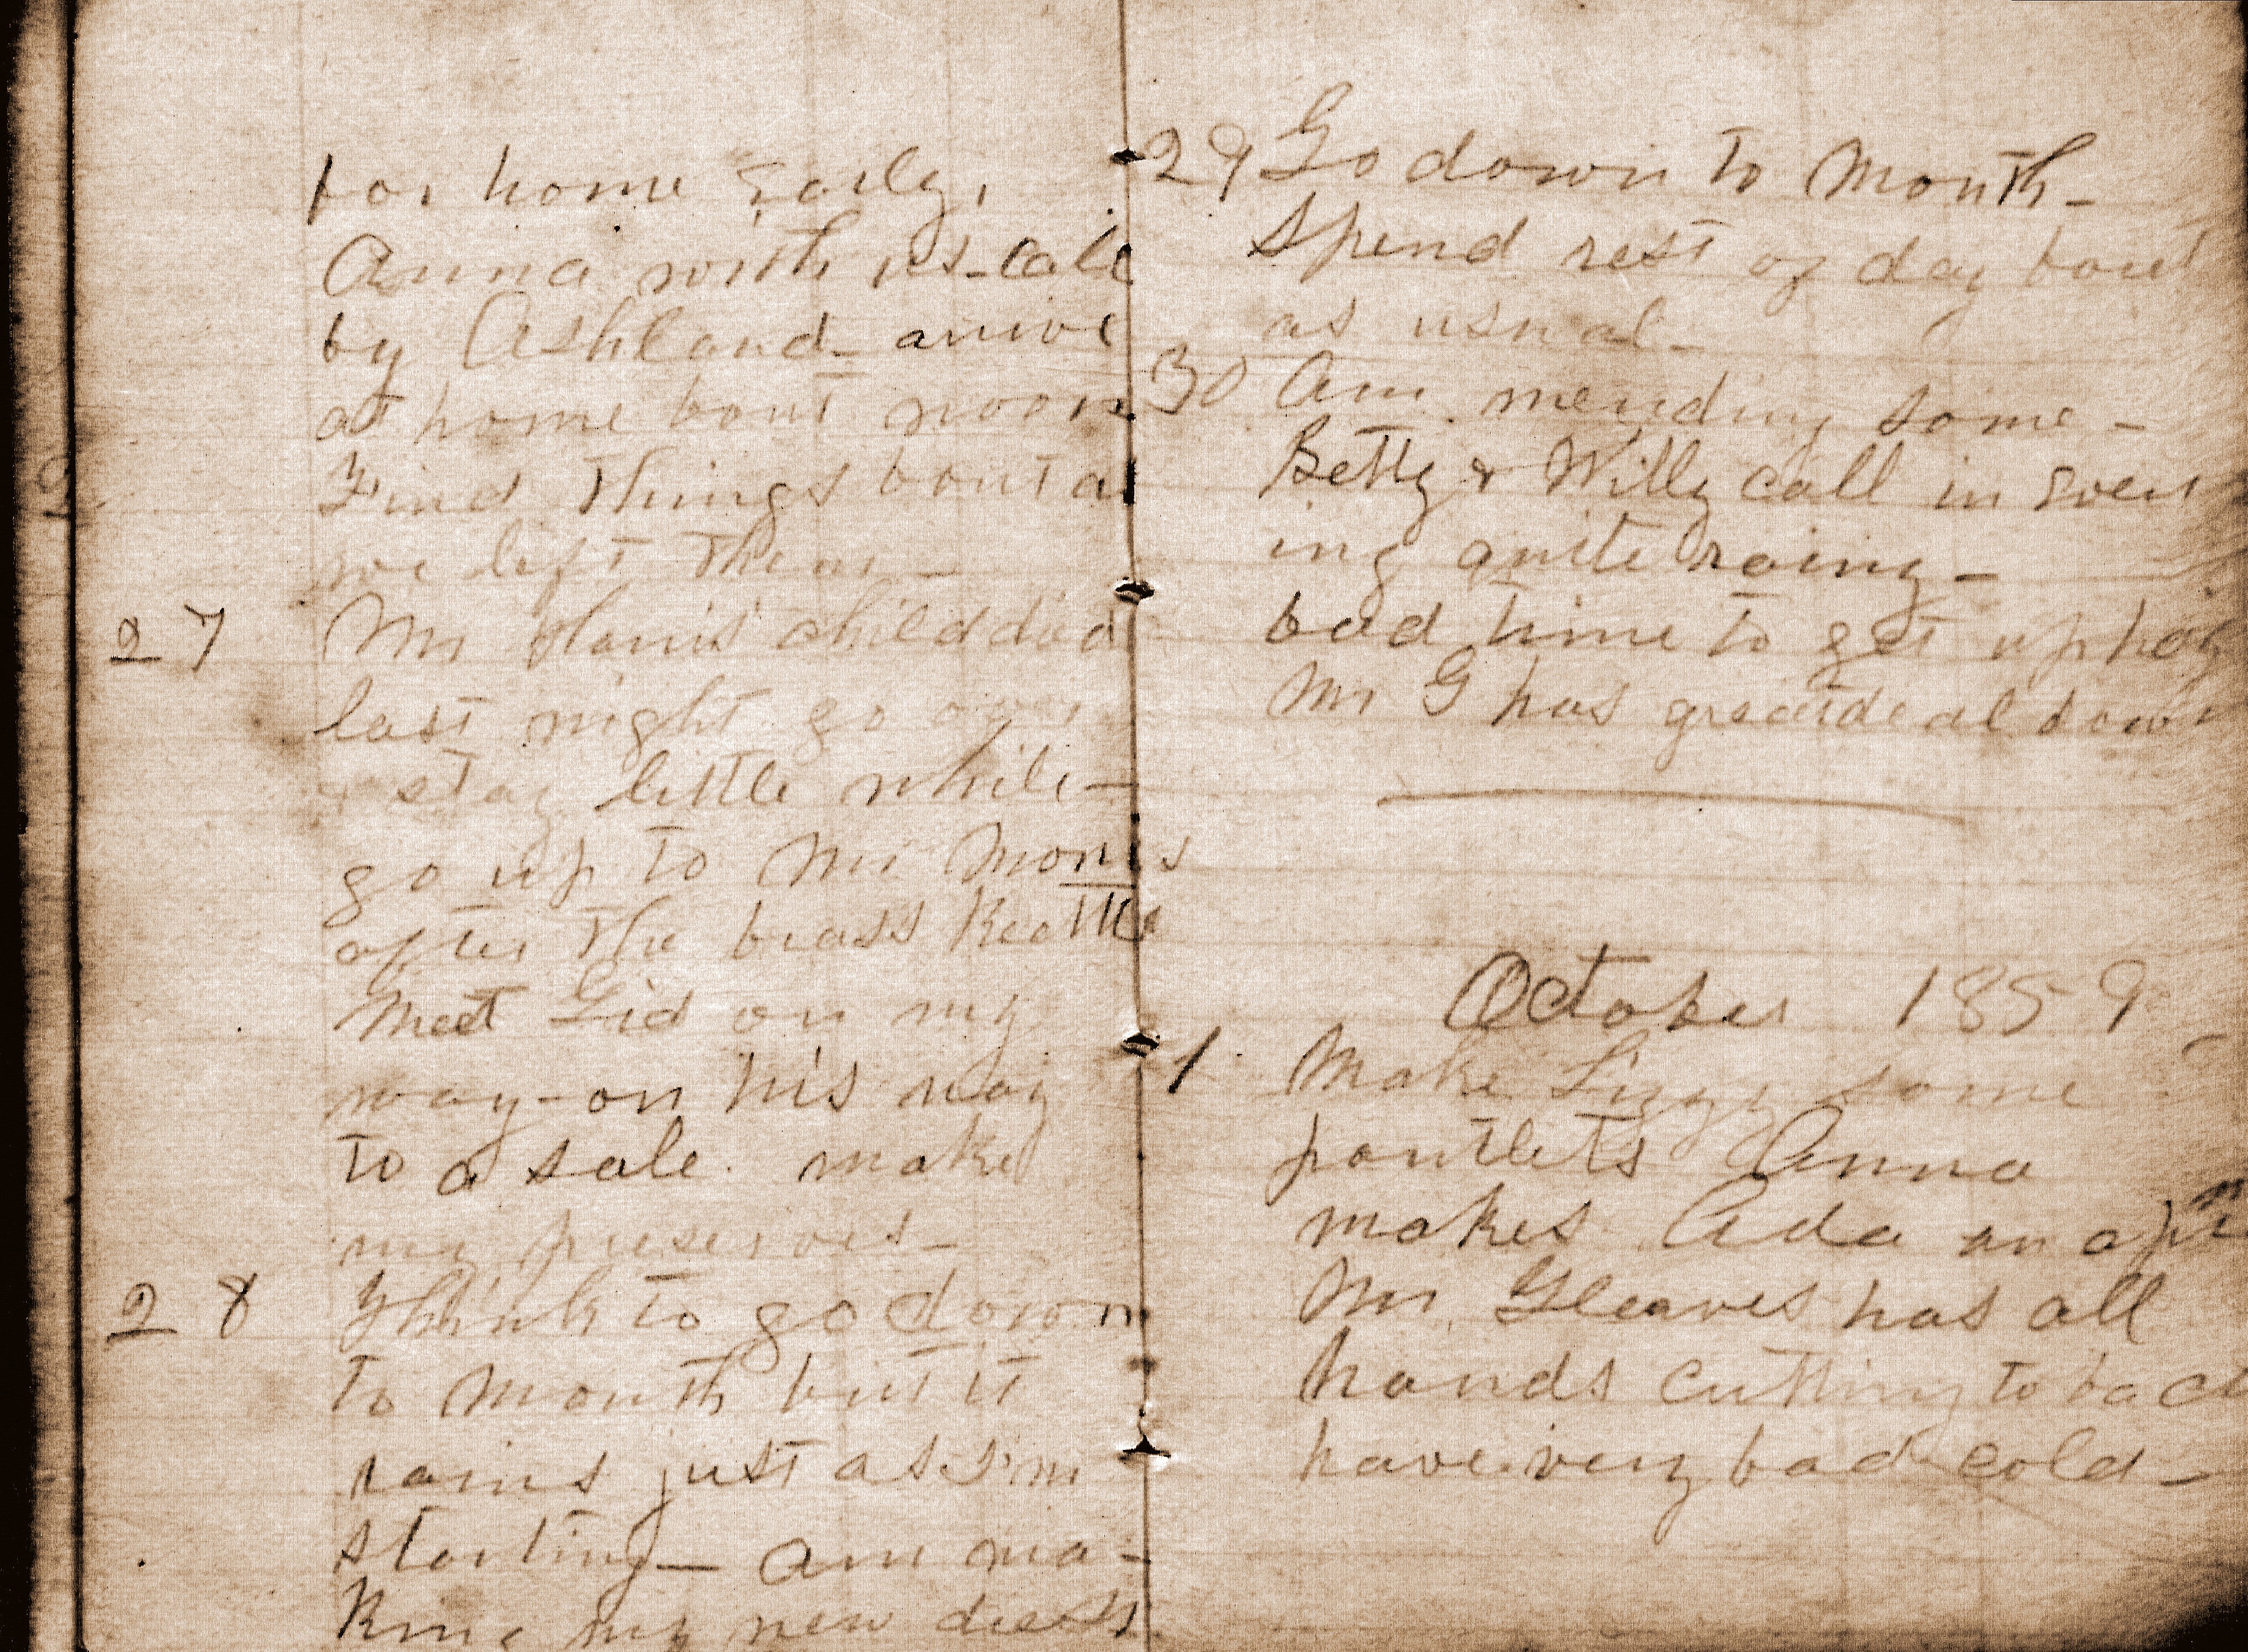 for home early,
Anna with us - call
by Ashland - arrive
at home bout noon
Find things bout as
we left them -
27 Mr child died
last night go over
& stay little while -
go up to Mr
after the brass keettle
Meet Gid on my
way - on his way
to a sale. make
my preserves -
28 Think to go down
to Mouth but it
rains just as I'm
starting - am ma-
king my new dress
29 Go down to Mouth -
Spend rest of day bout
as usual -
30 Am mending some -
Betty & Willy call in even
ing quite
bad time to get up hay
Mr G has greatdeal down
October 1859
1 Make Lizzy some
pantlets Anna
makes Ada an
Mr Gleaves has all
hands cutting tobac
have very bad cold -